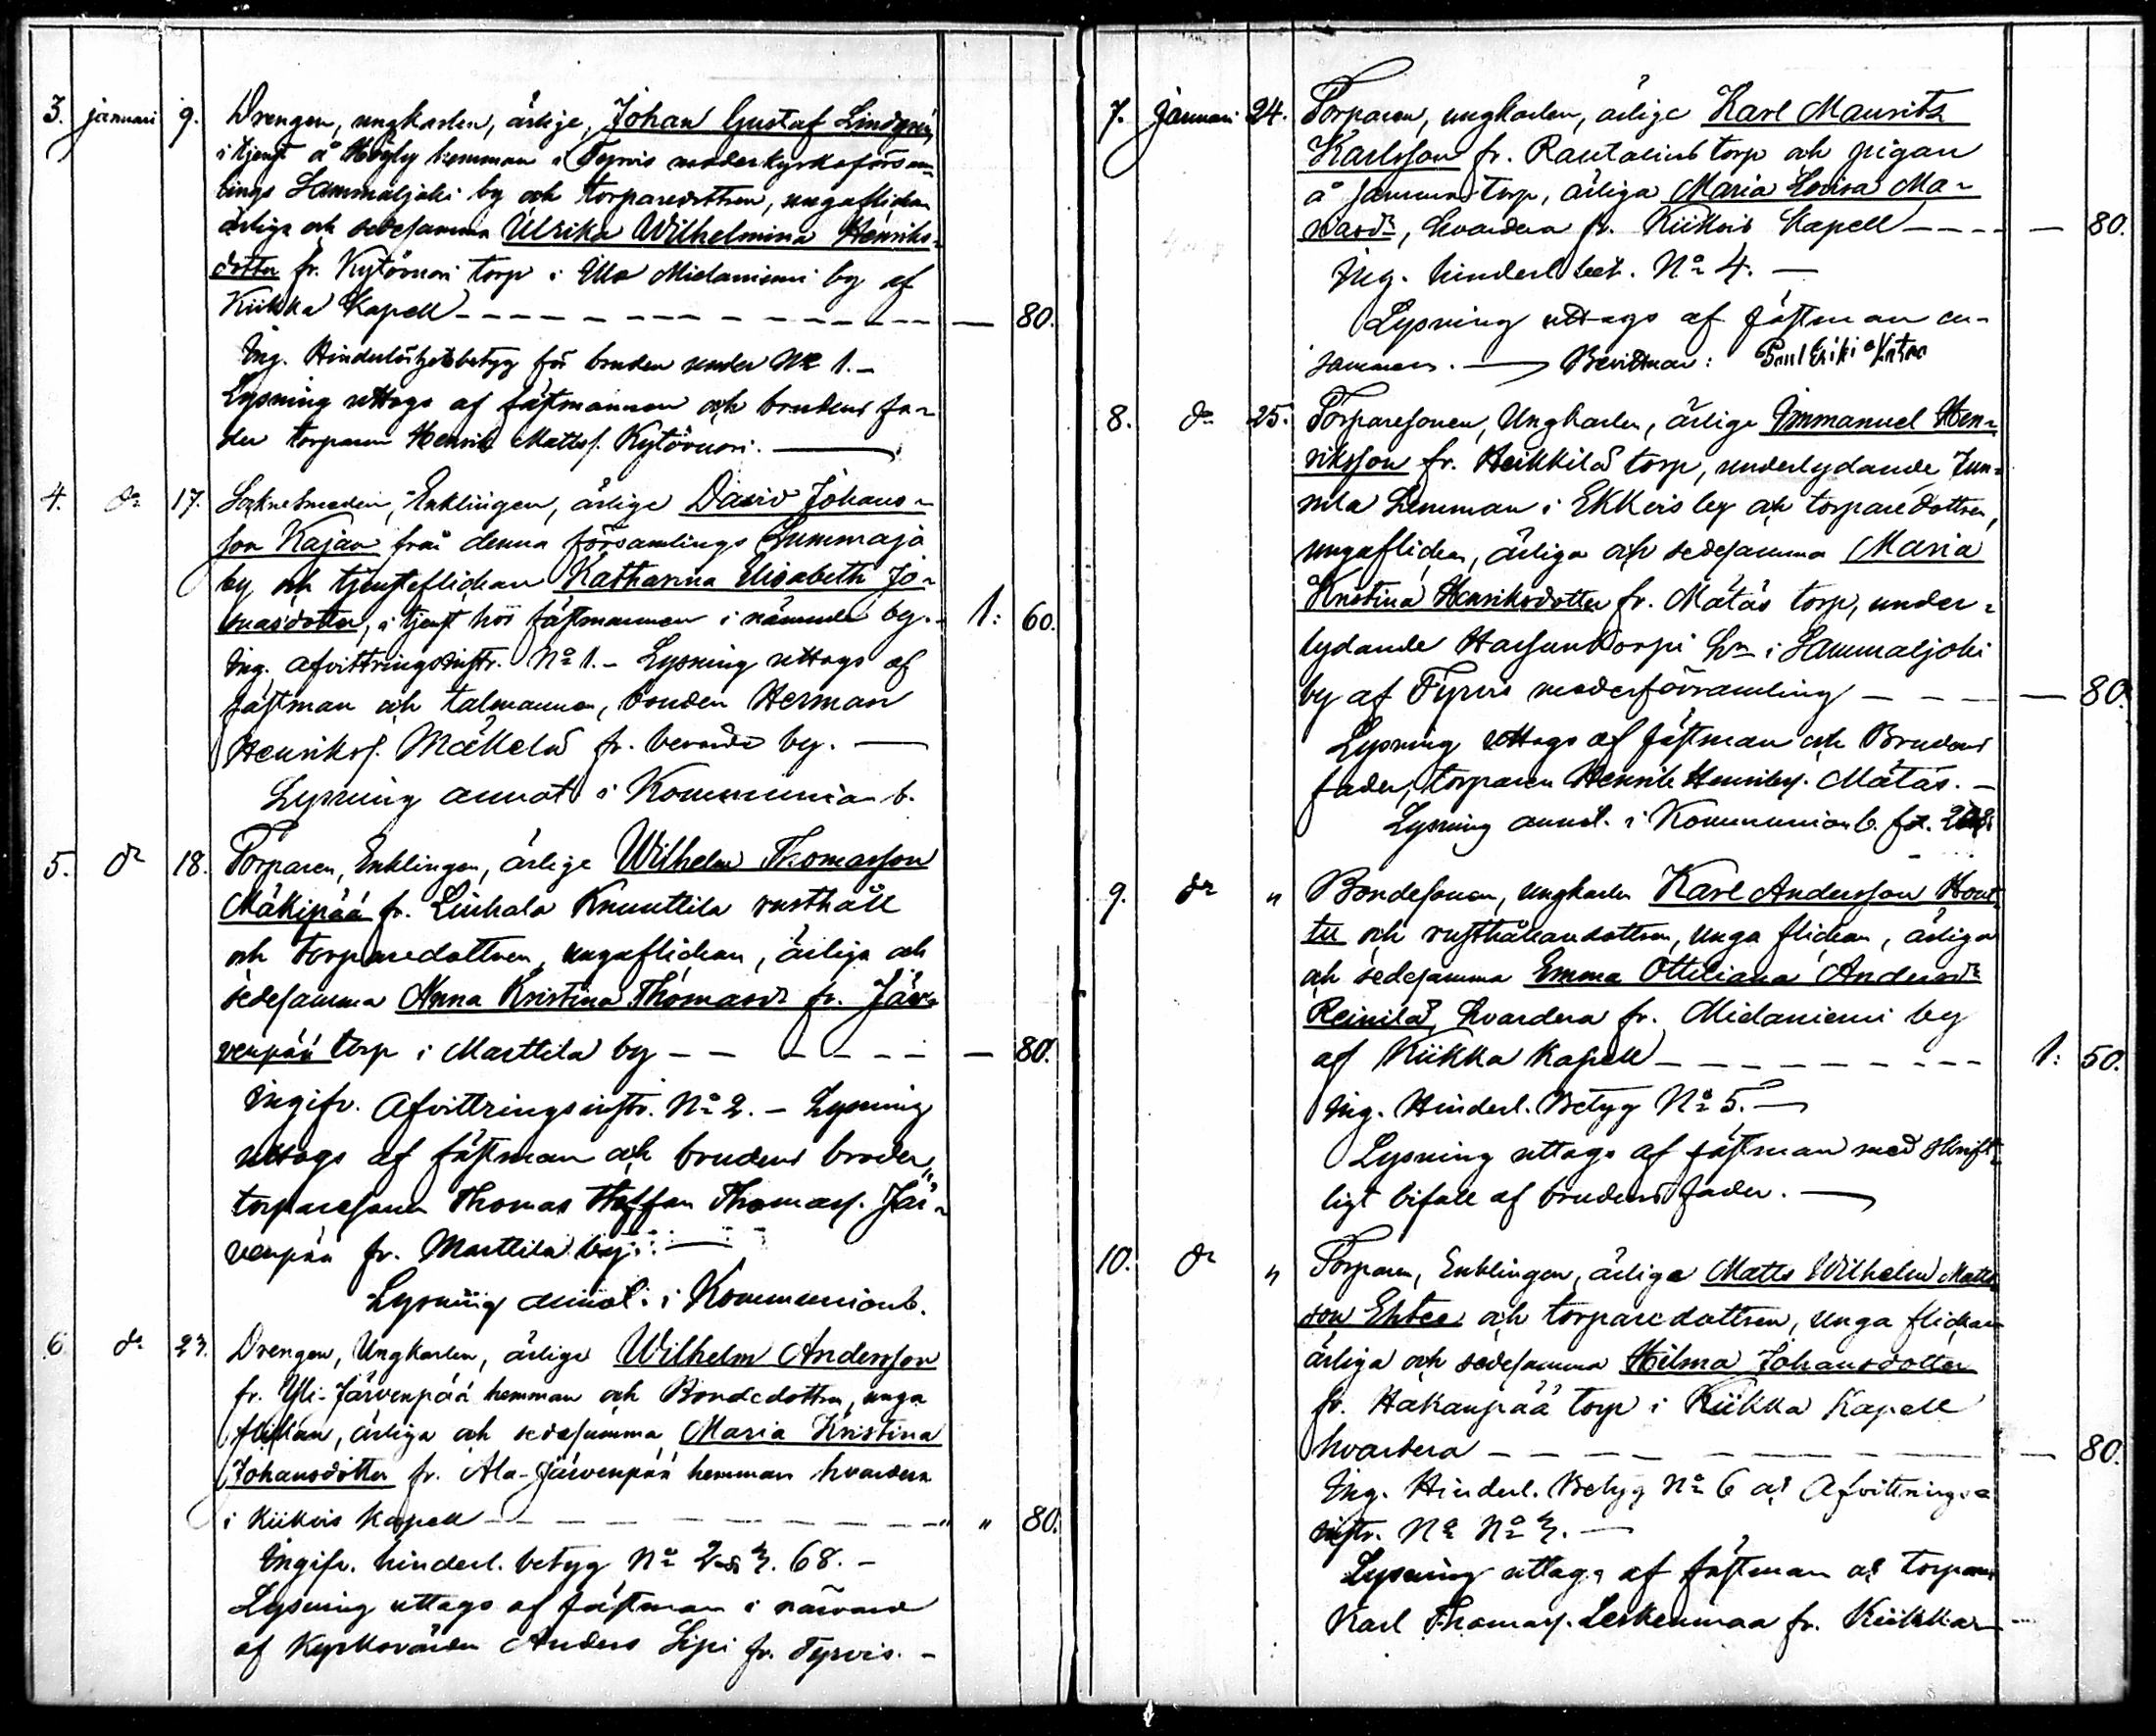 3. januari 9. Drengen, ungkarlen, ärlige, Johan Gustaf Lindgrén,
i tjenst å hemman i Tyrvis moderkyrkoförsam-
lings Sammaljoki by och torparedottren, ungaflickan
ärliga och sedesamma Ulrika Wilhelmina Henriks-
dotter fr. Kytövuori torp i Illo Midaniemi by af
Kiikka Kapell — 80.
Ing. Hinderlöshetsbetyg för bruden under No 1. –
Lysning uttogs af fästmannen och brudens fa-
der torparen Henrik Mattss. Kytövuori. —
4. do 17. Socknesmeden, Enklingen, ärlige David Johans-
son Kajan från denna församlings Lummaja
by och tjensteflickan Katharina Elisabeth Jo-
nasdotter, i tjenst hos fästmannen i nämnde by. 1: 60.
Ing. afvittringsinstr. No 1. – Lysning uttogs af
fästman och talmannen, bonden Herman
Henrikss. Mäkelä fr. berörde by. —
Lysning annot. i Kommunionb.
5. do 18. Torparen, Enklingen, ärlige Wilhelm Thomasson
Mäkipää fr. Liuhala Knuuttila rusthåll
och torparedottren, ungaflickan, ärliga och
sedesamma Anna Kristina Thomasdr fr. Jär-
venpää torp i Marttila by — 80.
Ingifv. Afvittringsinstr. No 2. – Lysning
uttogs af fästman och brudens broder,
torparesonen Thomas Thomass. Jär-
venpää fr. Marttila by. —
Lysning annot. i Kommunionb.
6. do 23. Drengen, Ungkarlen, ärlige Wilhelm Andersson
fr. Yli-Järvenpää hemman och Bondedottren, unga
flickan, ärliga och sedesamma Maria Kristina
Johansdotter fr. Ala-Järvenpää hemman hvardera
i Kiikois Kapell — " " 80.
Ingifv. hinderl. betyg No 2 68. –
Lysning uttogs af fästman i närvaro
af Kyrkovärden Anders Sipi fr. Tyrvis. –
7. Januari 24. Torparen, ungkarlen, ärlige Karl Maurits
Karlsson fr. Rautalins torp och pigan
å samma torp, ärliga Maria Lovisa Ma-
, hvardera fr. Kiikois Kapell — 80.
Ing. hinderl. bet. No 4. —
Lysning uttogs af fästman en-
sammen. — Bevittnar:
8. do 25. Torparesonen, Ungkarlen, ärlige Immanuel Hen-
riksson fr. Heikkilä torp, underlydande Jun-
nila hemman i Ekkois by och torparedottren,
ungaflickan, ärliga och sedesamma Maria
Kristina Henriksdotter fr. Mätäs torp, under-
lydande Hn i Sammaljoki
by af Tyrvis moderförsamling — 80.
Lysning uttogs af fästman och Brudens
fader, torparen Henrik Henrikss. Mätäs. –
Lysning annot. i Kommunionb.
9. do " Bondesonen, ungkarlen Karl Andersson Hout-
tu och rusthållaredottren, unga flickan, ärliga
och sedesamma Emma Ottiliana Andersdr
Reinilä, hvardera fr. Midaniemi by
af Kiikka Kapell — 1: 50.
Ing. Hinderl. Betyg No 5. —
Lysning uttogs af fästman med skrift-
ligt bifall af brudens fader. —
10. do " Torparen, Enklingen, ärlige Matts Wilhelm Matts-
son och torparedottren, unga flickan
ärliga och sedesamma Hilma Johansdotter
fr. Hakanpää torp i Kiikka Kapell
hvardera — 80.
Ing. Hinderl. Betyg No 6 o. Afvittrings-
instr. No No 3. —
Lysning uttogs af fästman o. torparen
Karl Thomass. Leskenmaa fr. Kiikka